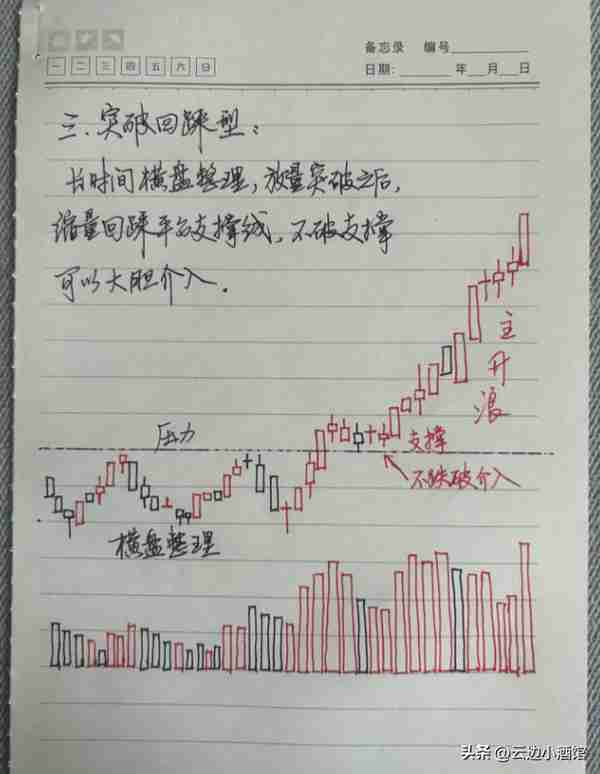 备忘录 编号
一 二 三 四 五 六 日
日期: 年 月 日
三、突破回踩型:
长时间横盘整理,放量突破之后,
缩量回踩平台支撑线,不破支撑
可以大胆介入.
主升浪
压力
支撑
不跌破介入
横盘整理
头条 @云边小酒馆